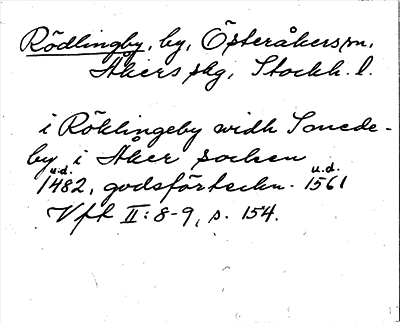 Rödlingby, by, Österåkers sn,
Åkers skg, Stockh. l.
i Röklingeby widh Smede-
by i Åker socken
u.d. u.d.
1482, godsförteckn. 1561
Vfl II: 8-9, s. 154.